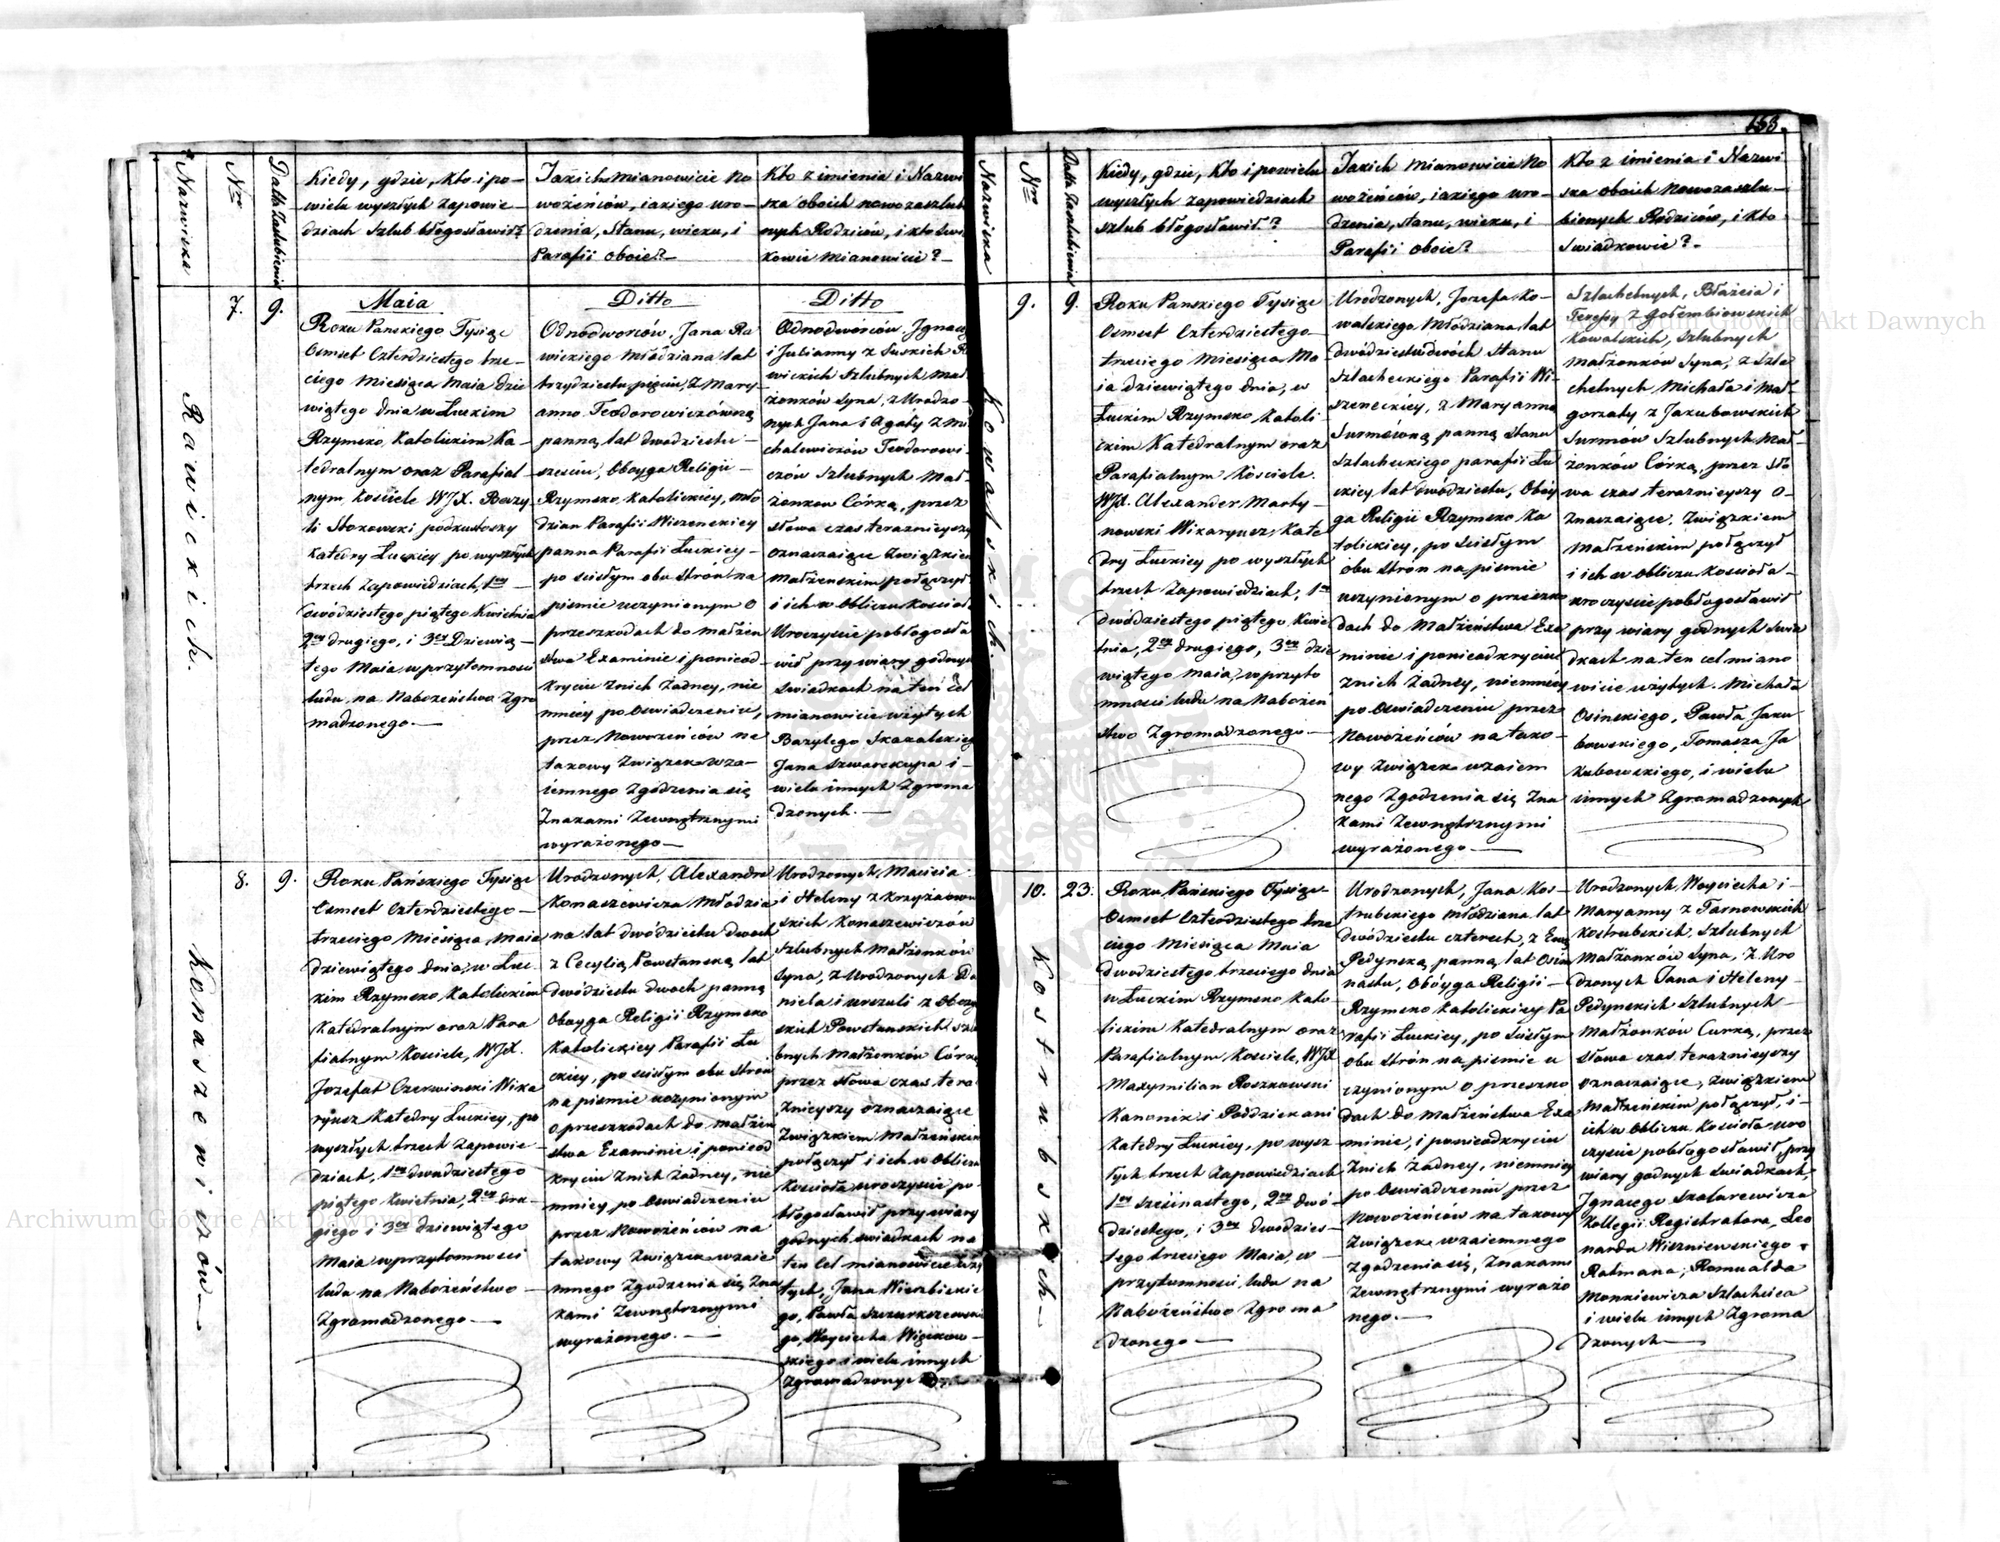 168.
Nazwiska
Nro
Datta Zaślubienia
Kiedy, gdzie, kto i po-
wielu wyszłych zapowie-
dziach szlub błogosławił?
Jakich mianowicie No
wożeńców, iakiego uro-
dzenia, stanu, wieku, i
Parafii oboie?
Kto z imienia i Nazwi
ska oboich nowozaszlub
nych Rodziców, i kto świ
kowie mianowicie?
Rawickich.
7.
9.
Maia
Roku Pańskiego Tysiąc
Osmset Czterdziestego trze-
ciego Miesiąca Maia dzie
wiątego dnia w Łuckim
Rzymsko Katolickim Ka-
tedralnym oraz Parafial-
nym Kościele WJX. Bazy-
li podkustoszy
Katedry Łuckiey po wyszłych
trzech Zapowiedziach, 1ey
dwódziestego piątego Kwietnia
2ey drugiego, i 3ey Dziewią-
tego Maia w przytomności
ludu na Nabożeństwo Zgro
madzonego.
Ditto
Odnodworców, Jana Ra
wickiego młodziana lat
trzydziestu pięciu, z Mary-
anno Teodorowiczówną
panną lat dwodziestu
sześciu, Oboyga Religii
Rzymsko Katolickiey, mło
dzian Parafii Wiszenskiey
panna Parafii Łuckiey
po ścisłym obu strón na
piśmie uczynionym o
przeszkodach do małżeń
stwa Examinie i ponieod
kryciu Znich Żadney, nie
mniey po Oswiadczeniu,
przez Nowożeńców na
takowy Związek wza-
iemnego Zgodzenia się
Znakami Zewnętrznymi
wyrażonego
Ditto
Odnodworców Jgnacego
i Julianny z Suskich R
wickich Szlubnych Mał
żonków Syna, z Urodzo-
nych Jana i Agaty z Mi
chalewiczów Teodorowi-
czów Szlubnych Mał-
żonkow Córką, przez
słowa czas terazniejszy
oznaczaiące Związkiem
Małżenskim połączył
i ich w Obliczu Kościoła
Uroczyście pobłogosła
wił przy wiary godnych
swiadkach na ten cel
mianowicie użytych
Bazylego Skazalskiego
Jana Szwarckupa i
wielu innych Zgroma
dzonych.
Konaszewiczów
8.
9.
Roku Pańskiego Tysiąc
Osmset Czterdziestego
trzeciego Miesiąca Maia
dziewiątego dnia, w Łuc-
kim Rzymsko Katolickim
Katedralnym oraz Para
fialnym Kościele, WJX.
Jozefat Czerwinski Wika
ryusz Katedry Łuckiey, po
wyszłych trzech Zapowie
dziach, 1ey dwadziestego
piątego Kwietnia, 2ey dru-
giego i 3ey dziewiątego
Maia w przytomnosci
ludu na Nabożeństwo
Zgromadzonego
Urodzonych, Alexandra
Konaszewicza Młodzia
na lat dwódziestu dwoch
z Cecylią Powstańską lat
dwódziestu dwoch panną
oboyga Religii Rzymsko
Katolickiey Parafii Łu
ckiey, po ścisłym obu stron
na piśmie uczynionym
o przeszkodach do małżeń
stwa Examinie i ponieod
kryciu Znich Żadney, nie
mniey po Oswiadczeniu
przez Nowożeńców na
takowy Związek wzaie
mnego Zgodzenia się Zna
kami Zewnętrznymi
wyrażonego.
Urodzonych, Macieia
i Heleny z Krzyżanow
skich Konaszewiczów
Szlubnych Małżonków
Syna, z Urodzonych Da
niela i Urszuli z
skich Powstańskich szlu
bnych Małżonków Córką
przez słowa czas tera
źnieyszy oznaczaiące
Związkiem Małżeńskim
połączył i ich w Obliczu
Kościoła uroczyście po-
błogosławił przy wiary
godnych swiadkach na
ten cel mianowicie uży
tych, Jana Wierzbickie
go, Pawła
go, Woyciecha Więckow-
skiego i wielu innych
Zgromadzonych
Nazwiska
Nro
Datta Zaslubienia
Kiedy, gdzie, kto i powielu
wyszłych zapowiedziach
szlub błogosławił?
Jakich mianowicie No
wożeńców, iakiego uro-
dzenia, stanu, wieku, i
Parafii oboie?
Kto z imienia i Nazwi
ska oboich Nowozaszlu-
bionych Rodziców, i kto
Swiadkowie?
Kowalskich.
9.
9.
Roku Pańskiego Tysiąc
Osmset Czterdziestego
trzeciego Miesiąca Ma
ia dziewiątego dnia, w
Łuckim Rzymsko Katoli
ckim Katedralnym oraz
Parafialnym Kościele
WJX. Alexander Marty-
nowski Wikaryusz Kate
dry Łuckiey po wyszłych
trzech Zapowiedziach, 1ey
dwódziestego piątego Kwie
tnia, 2ey drugiego, 3ey dzie
wiątego Maia, w przyto
mnosci ludu na Nabożeń
stwo Zgromadzonego
Urodzonych, Jozefa Ko-
walskiego Młodziana lat
dwódziestu dwóch Stanu
Szlacheckiego Parafii Wi-
szenskiey, z Maryanną
Surmówną panną Stanu
Szlacheckiego parafii Łu
ckiey lat dwódziestu, Oboy
ga Religii Rzymsko Ka
tolickiey, po scisłym
obu strón na piśmie
uczynionym o przeszko
dach do Małżeństwa Exa
minie i ponieodkryciu
Znich Żadney, niemniey
po Oswiadczeniu przez
Nowożeńców na tako-
wy Związek wzaiem
nego Zgodzenia się Zna
kami Zewnętrznymi
wyrażonego
Szlachetnych, Błażeia i
Teresy z Gołembiowskich
Kowalskich, Szlubnych
Małżonków Syna, z Szla
chetnych Michała i Mał-
gorzaty z Jakubowskich
Surmów Szlubnych Mał-
żonków Córką, przez sło
wa czas teraznieyszy o-
znaczaiące, Związkiem
Małżeńskim połączył
i ich w Obliczu Kościoła
uroczyscie pobłogosławił
przy wiary godnych swia
dkach na ten cel miano
wicie użytych. Michała
Osinskiego, Pawła Jaku
bowskiego, Tomasza Ja
kubowskiego, i wielu
innych Zgromadzonych
Kostrubskich
10.
23.
Roku Pańskiego Tysiąc
Osmset Czterdziestego trze
ciego Miesiąca Maia
dwodziestego trzeciego dnia
w Łuckim Rzymsko Kato-
lickim Katedralnym oraz
Parafialnym Kościele, WJX
Maxymilian Roszkowski
Kanonik i Poddziekani
Katedry Łuckiey, po wysz
łych trzech Zapowiedziach
1ey sześćnastego, 2ey dwó-
dziestego, i 3ey dwodzies-
tego trzeciego Maia, w
przytomnosci ludu na
Nabożeństwo Zgroma
dzonego
Urodzonych, Jana Kos-
trubskiego młodziana lat
dwódziestu czterech, z Ewą
Pedyńską panną lat Osim
nastu, Obóyga Religii
Rzymsko Katolickiey Pa
rafii Łuckiey, po scisłym
obu strón na pismie u
czynionym o przeszko
dach do Małżeństwa Exa
minie, i ponieodkryciu
Znich Żadney, niemniey
po Oswiadczeniu przez
Nowożeńców na takowy
Związek wzaiemnego
Zgodzenia się, Znakami
Zewnętrznymi wyrażo
nego.
Urodzonych Woyciecha i
Maryanny z Tarnowskich
Kostrubskich, Szlubnych
Małżonków Syna, z Uro
dzonych Jana i Heleny
Pedynskich Szlubnych
Małżonkow Curką, przez
słowa czas terazniejszy
oznaczaiące, Związkiem
Małżeńskim połączył, i
ich w Obliczu Kościoła uro
czyscie pobłogosławił przy
wiary godnych swiadkach,
Jgnacego Szalarewicza
Kollegii Registratora, Leo
narda Wiszniewskiego
Ratmana, Romualda
Monkiewicza Szlachcica
i wielu innych Zgroma
dzonych
Archiwum Główne Akt Dawnych
Archiwum Główne Akt Dawnych